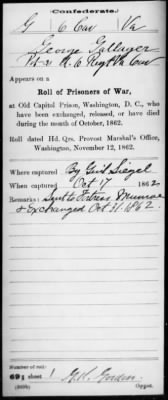 Confederate.
G 6 Cav Va
George Gallager
Pvt. Co. K. 6 Regt Va Cav
Appears on a
Roll of Prisoners of War,
at Old Capitol Prison, Washington, D. C., who
have been exchanged, released, or have died
during the month of October, 1862.
Roll dated Hd. Qrs. Provost Marshal's Office,
Washington, November 12, 1862.
Where captured By Genl Siegel
When captured Oct 17, 1862
Remarks: Sent to Fortress Munroe
& Exchanged Oct 31. 1862.
Number of roll:
69; sheet 1
Copyist.